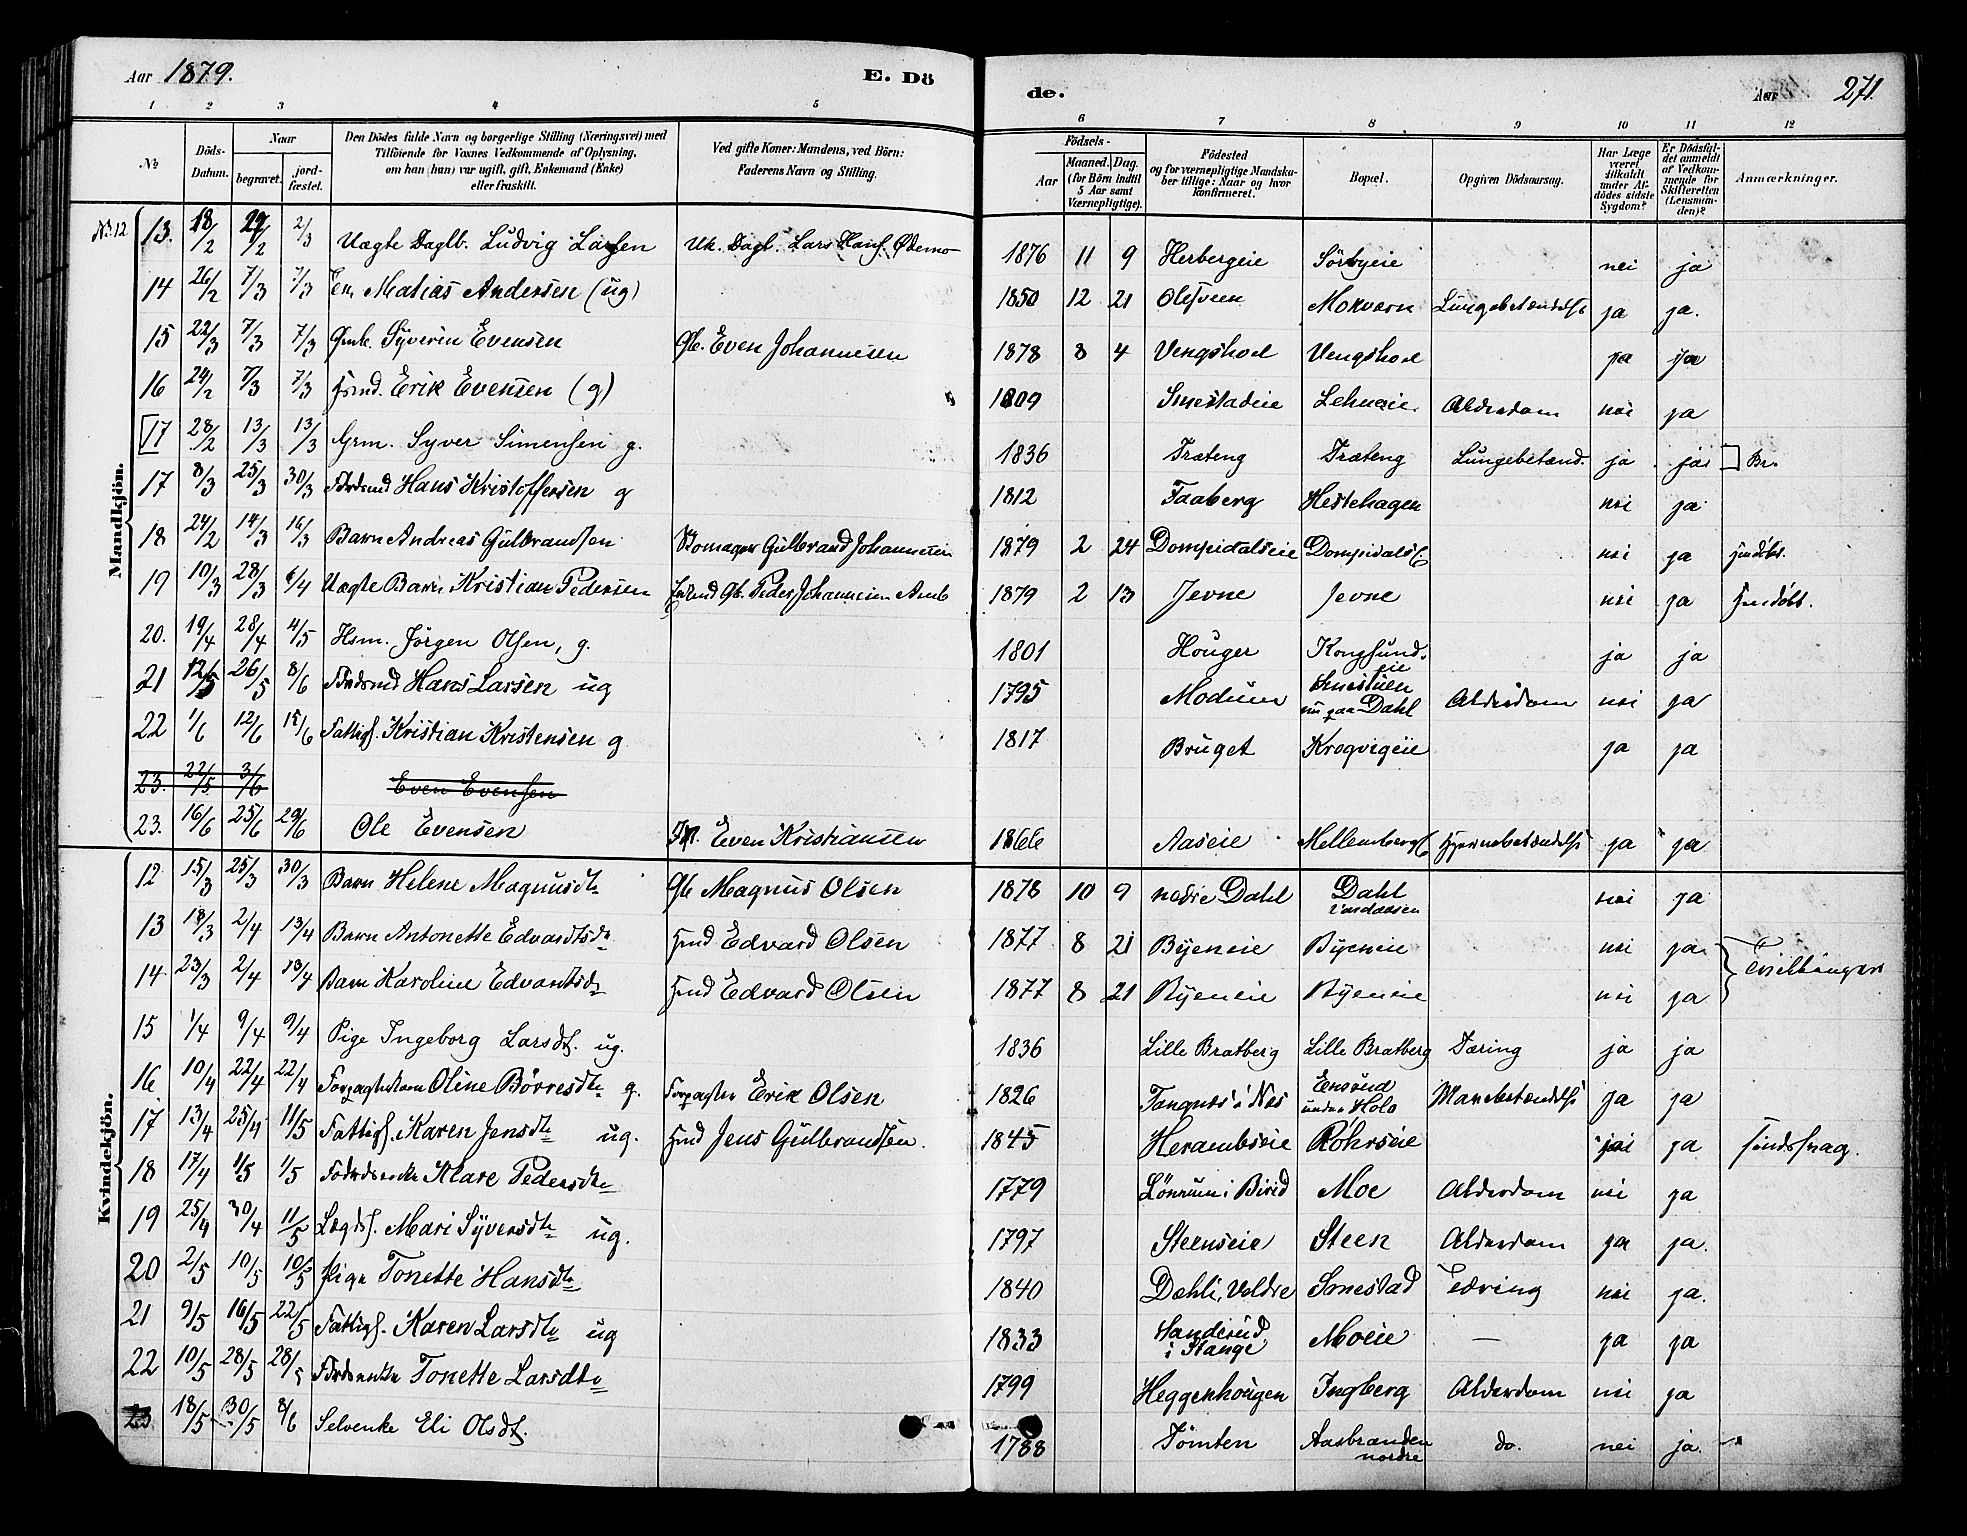 Aar 1879. E. Dö de. Aar 271.
1 2 3 4 5 6 7 8 9 10 11 12
No Döds-Datum. Naar begravet. jord-fæstet. Den Dödes fulde Navn og borgerlige Stilling (Næringsvei) med Tilföiende for Voxnes Vedkommende af Oplysning, om han (hun) var ugift, gift, Enkemand (Enke) eller fraskilt. Ved gifte Koner: Mandens, ved Börn: Faderens Navn og Stilling. Födsels- Aar Maaned. Dag. (for Börn indtil 5 Aar samt Værnepligtige). Födested og for værnepligtige Mandskaber tillige: Naar og hvor konfirmeret. Bopæl. Opgiven Dödsaarsag. Har Læge været tilkaldt under Afdödes sidste Sygdom? Er Dödsfaldet anmeldt af Vedkommende for Skifteretten (Lensmanden)? Anmærkninger.
Mandkjön.
No 12 13. 18/2 2/3 Uægte Daglb. Ludvig Larsen Uk. Dagl. Lars Hans. Ødemo 1876 11 9 Herbergeie Sörbyeie nei ja
14 26/2 7/3 7/3 Em Matias Andersen (ug) 1850 12 21 Olesveen Mokvarn Lungebetændelse ja ja.
15 22/3 7/3 7/3 Gmb. Syverin Evensen Gb. Even Johannesen 1878 8 4 Vengshoel Vengshoel ja ja
16 24/2 7/3 7/3 Hsmd. Erik Evensen (g) 1809 Smestadeie Lehneeie Alderdom nei ja
17 28/2 13/3 13/3 Grm. Syver Simensen g. 1836 Træteng Træteng Lungebetænd. ja ja Br.
17 8/3 25/3 30/3 Födsmd Hans Kristoffersen g 1812 Faaberg Hestehagen nei ja
18 24/2 14/3 16/3 Barn Andreas Gulbrandsen Skomager Gulbrand Johannesen 1879 2 24 Dompidalseie Dompidalse nei ja Hmdöbt.
19 10/3 28/3 6/4 Uægte Barn Kristian Pedersen Gb. Peder Johannesen 1879 2 13 Jevne Jevne nei ja Hmdöbt.
20. 19/4 28/4 4/5 Hsm. Jörgen Olsen, g. 1801 Houger Kongsundeie ja ja
21 12/5 26/5 8/6 Födsmd Hans Larsen ug 1795 Modum Smestuen nu paa Dahl Alderdom nei ja
22 1/6 12/6 15/6 Fattigl. Kristian Kristensen g 1817 Bruget Krogvigeie ja ja
23. 22/5 3/6 Even Evensen
23. 16/6 25/6 29/6 Ole Evensen Even Kristiansen 1866 Aaseie Mellemberg Hjernebetændelse ja ja
Kvindekjön.
12 15/3 25/3 30/3 Barn Helene Magnusdtr Gb Magnus Olsen 1878 10 9 nedre Dahl Dahl Vardaasen nei ja
13 18/3 2/4 13/4 Barn Antonette Edvardtsdtr Hmd Edvard Olsen 1877 8 21 Byeneie Byeneie nei ja Tvillinger
14 23/3 2/4 13/4 Barn Karoline Edvardsdtr Hmd Edvard Olsen 1877 8 21 Byeneie Byeneie nei ja
15 1/4 9/4 9/4 Pige Ingeborg Larsdt. ug. 1836 Lille Bratberg Lille Bratberg Tæring ja ja
16 10/4 22/4 22/4 Forpagterkone Oline Börresdtr g. Forpagter Erik Olsen 1826 Tangnes i Næs Ensrud under Holo Mavebetændelse ja ja
17 13/4 25/4 11/5 Fattigl. Karen Jensdtr ug. Hmd Jens Gulbrandsen. 1845 Herambseie Röhrseie nei ja sindssvag.
18 17/4 1/5 1/5 Födrdsenke Mare Pedersdtr 1779 Lönrum i Birid Moe Alderdom nei ja
19 25/4 30/4 11/5 Lægdsl. Mari Syversdtr ug. 1797 Steenseie Steen Alderdom ja ja.
20 2/5 10/5 10/5 Pige Tonette Hansdtr 1840 Dæhli, Veldre Smestad Tæring nei ja.
21 9/5 16/5 22/5 Fattigl. Karen Larsdtr ug 1833 Sanderud i Stange Moeie — ja ja
22 10/5 28/5 28/5 Födsenke Tonette Larsdtr 1799 Heggenhougen Ingberg Alderdom nei ja
23 18/5 30/5 8/6 Selvenke Eli Olsdt. 1788 Tömten Aasbrænden nordre do. nei ja.